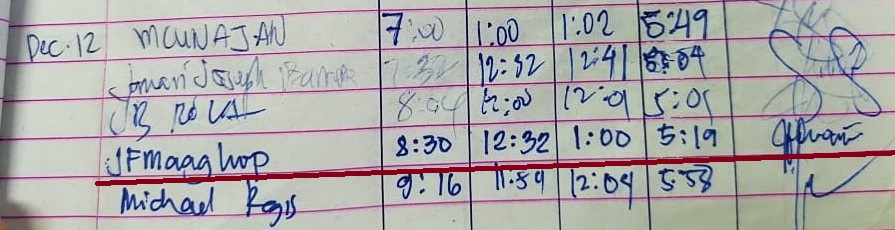 Dec. 12 MCUNAJAN 7:00 1:00 1:02 5:49
Jomari Joseph 7:32 12:32 12:41 5:04
JB ROVAL 8:04 12:00 12:01 5:01
JFmaaghop 8:30 12:32 1:00 5:19
Michael Regis 9:16 11:59 12:04 5:58